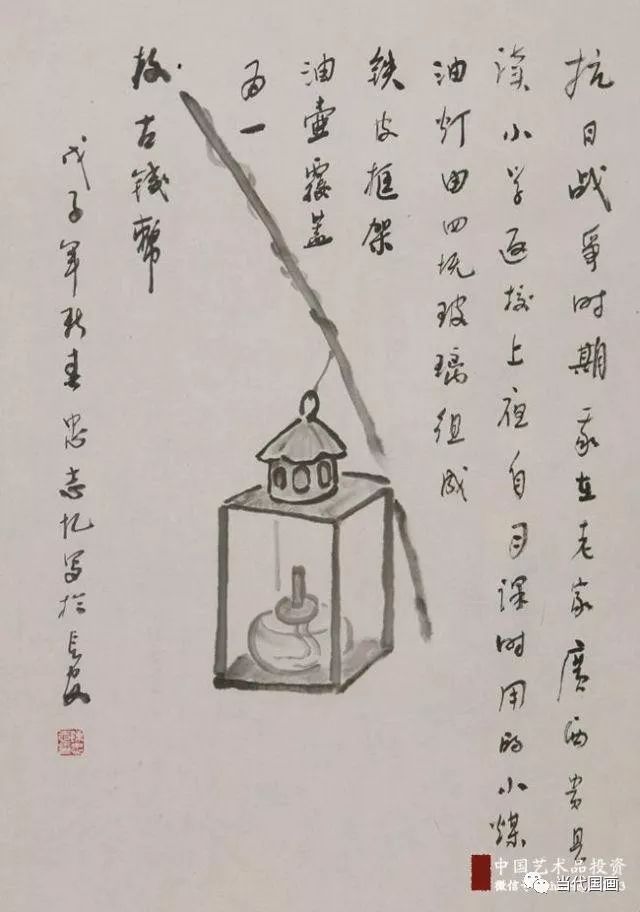 抗日战争时期我在老家廣西贵县
读小学返校上夜自习课时用的小煤
油灯由四块玻璃组成
铁皮框架
油壶覆盖
为一
枚古钱幣
戊子年新春忠志忆写於長安
中国艺术品投资
微信
当代国画